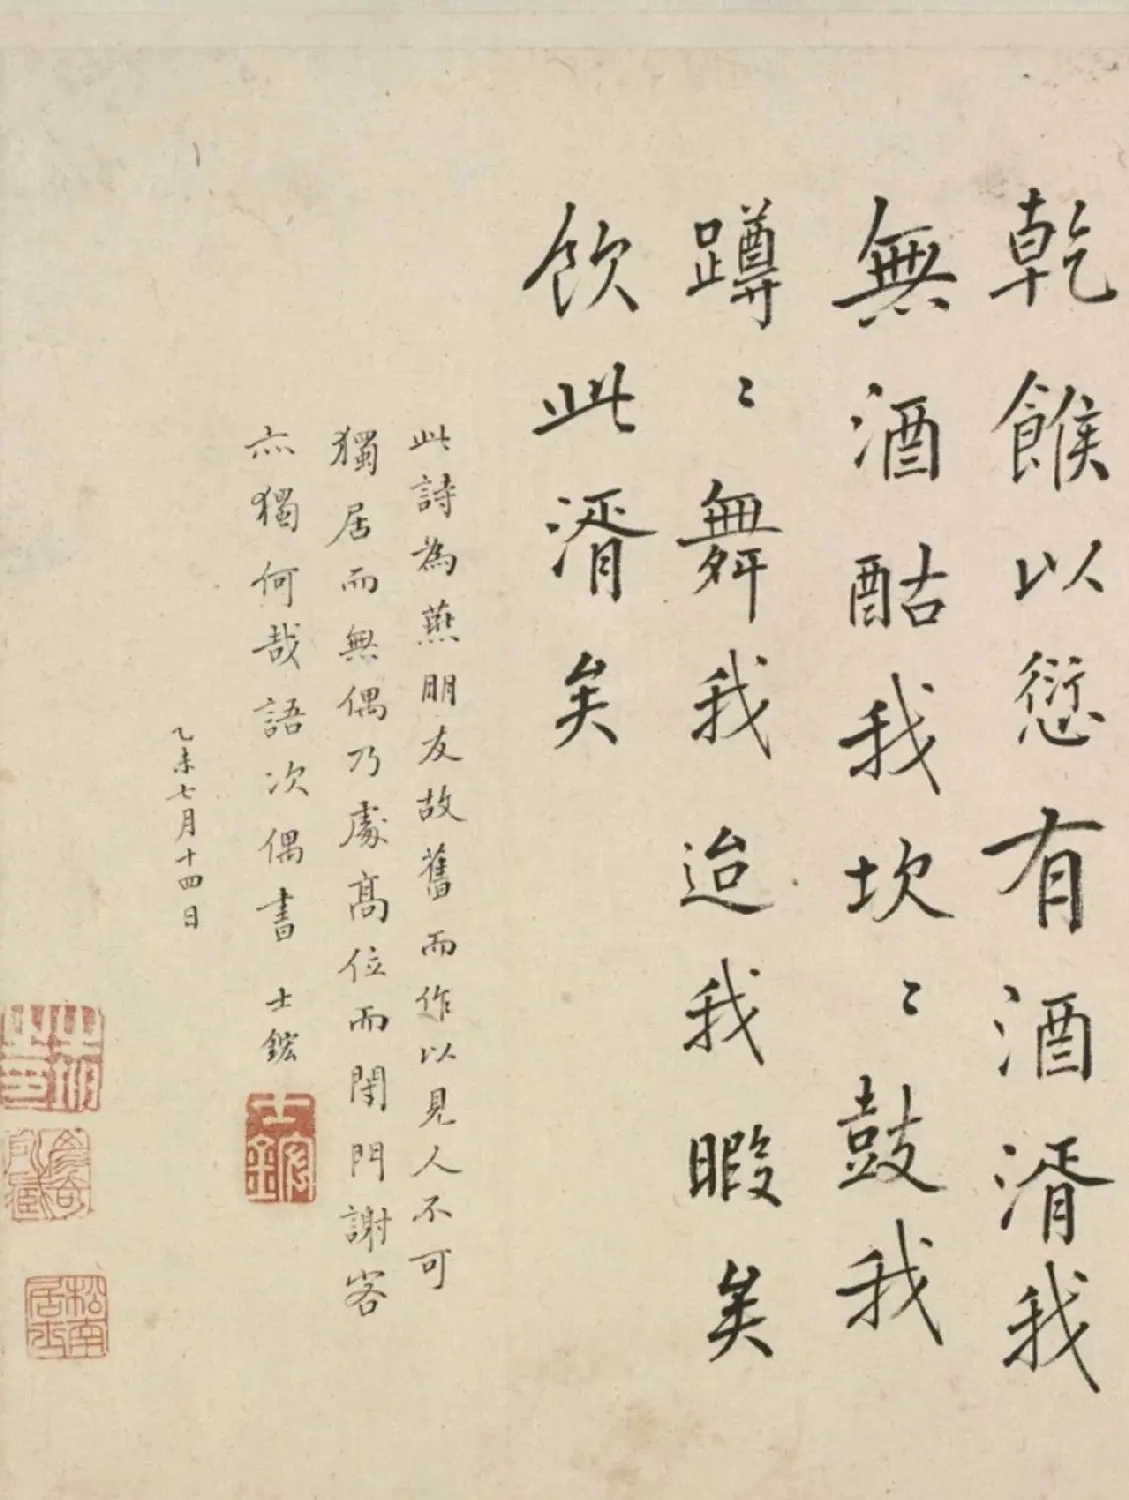 乾餱以愆有酒湑我
無酒酤我坎〻鼓我
蹲〻舞我迨我暇矣
飲此湑矣
此詩為燕朋友故舊而作以見人不可
獨居而無偶乃處高位而閉門謝客
亦獨何哉語次偶書 士鋐
乙未七月十四日
士鋐
松南居士